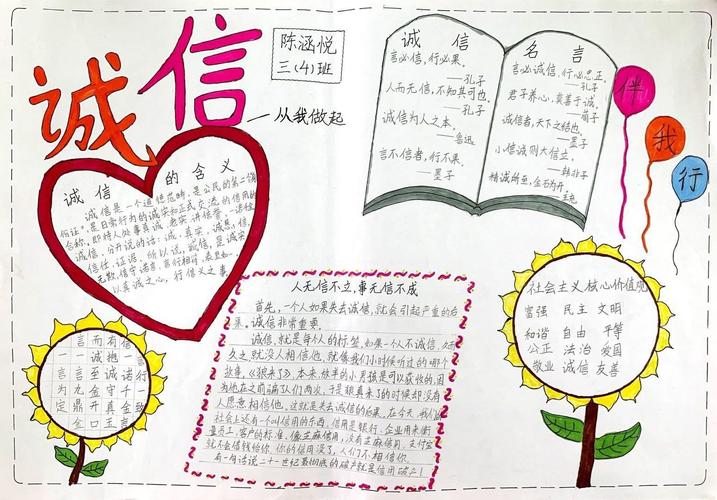 诚信
陈涵悦
三(4)班
从我做起
诚信 名言
言必信,行必果。
——孔子
人而无信,不知其可也。
——孔子
诚信为人之本。
——鲁迅
言不信者,行不果。
——墨子
言必诚信,行必忠正。
——孔子
君子养心,莫善于诚。
——荀子
诚信者,天下之结也。
小信诚则大信立。
——韩非子
精诚所至,金石为开。
伴我行
诚信的含义
诚信是一个道德范畴,是公民的第二个“身
份证”,是日常行为的诚实和正式交流的信用的
合称。即待人处事真诚、老实、讲信誉,
诚信,分开说的话:诚,真实,诚恳;信,
信任,证据。所以说,诚信,是诚实
无欺,信守诺言,言行相符,表里如一。
以真诚之心,行信义之事。
人无信不立,事无信不成
首先,一个人如果失去诚信,就会引起严重的后
果。诚信非常重要。
诚信,就是每个人的标签,如果一个人不诚信,久而
久之就没人相信他,就像我们小时候听过的哪个
故事,《狼来了》本来故事的小男孩是可以获救的,因
为他在之前骗了人们两次,于是狼真来了的时候却没有
人愿意相信他,这就是失去诚信的后果。在今天,我们的
社会上还有一个叫信用的东西,信用是银行、企业用来衡
量员工、客户的标准,像芝麻信用,没有芝麻信用,支付宝
就不会借钱给你,你的信用没了,人们不相信你。
有一句话说二十一世纪最彻底的破产就是信用破产!
言而有信
一诚抱一
言至诚诺言
为九金守千行
定鼎开真金致
金口玉言
社会主义核心价值观
富强 民主 文明
和谐 自由 平等
公正 法治 爱国
敬业 诚信 友善